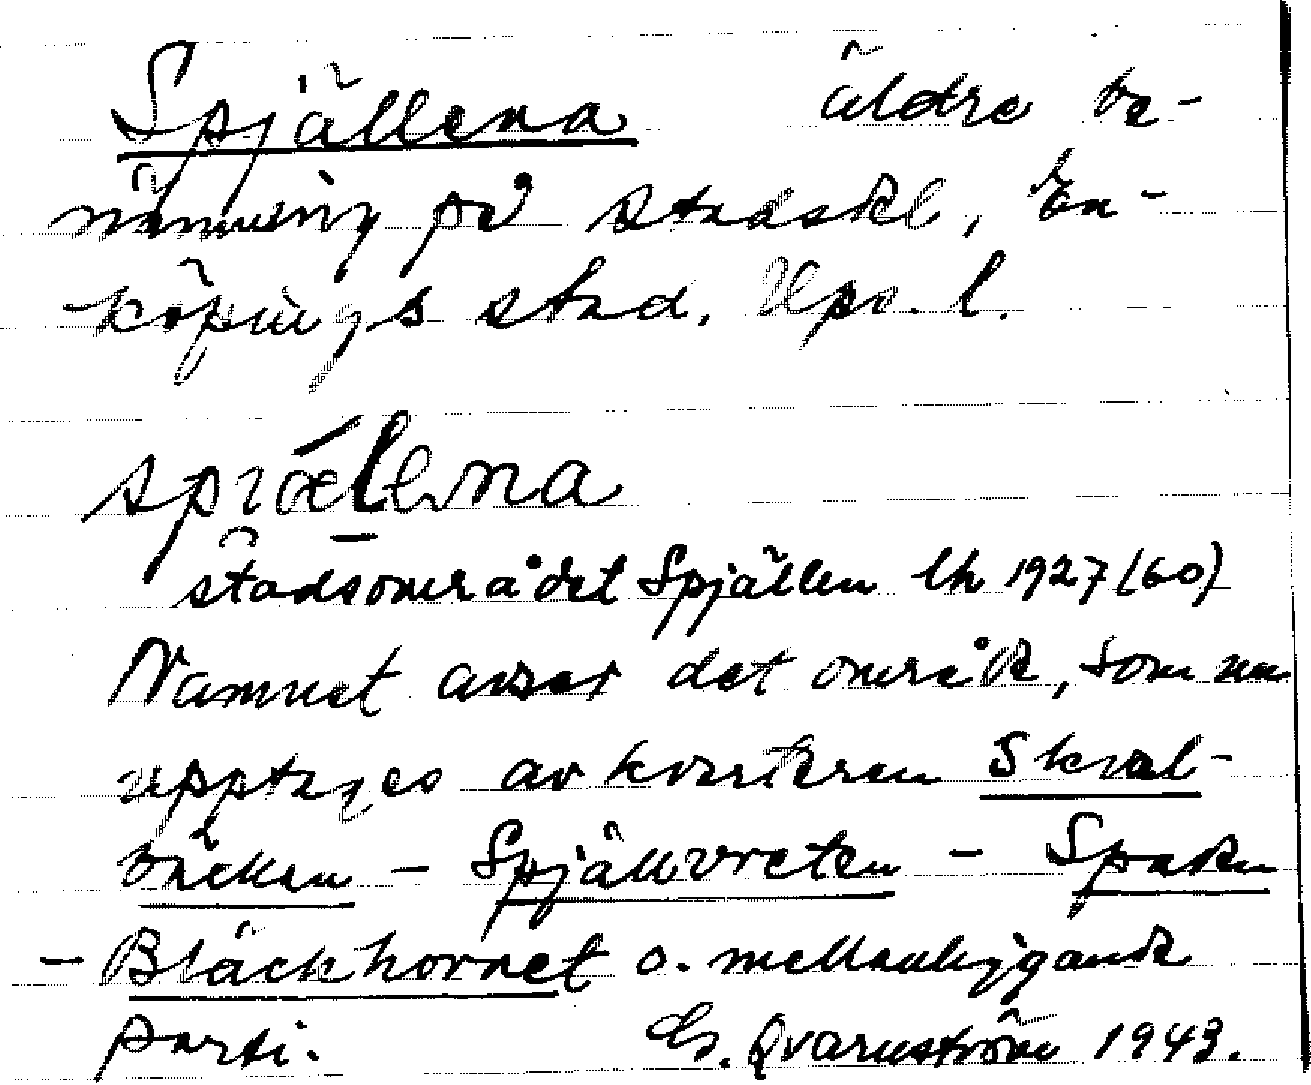 Spjällena äldre be-
nämning på stadskl, En-
köpings stad. Ups. l.
spıǽlena
stadsområdet Spjällen lh 1927 (60)
Namnet avser det område, som nu
upptages av kvarteren Skval-
bäcken - Spjällvreten - Spaken
- Bläckhornet o. mellanliggande
parti. Qvarnström 1943.